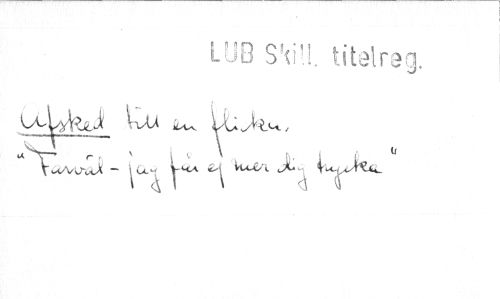 LUB Skill. titelreg.
Afsked till en flicka.
"Farväl – jag får ej mer dig trycka"